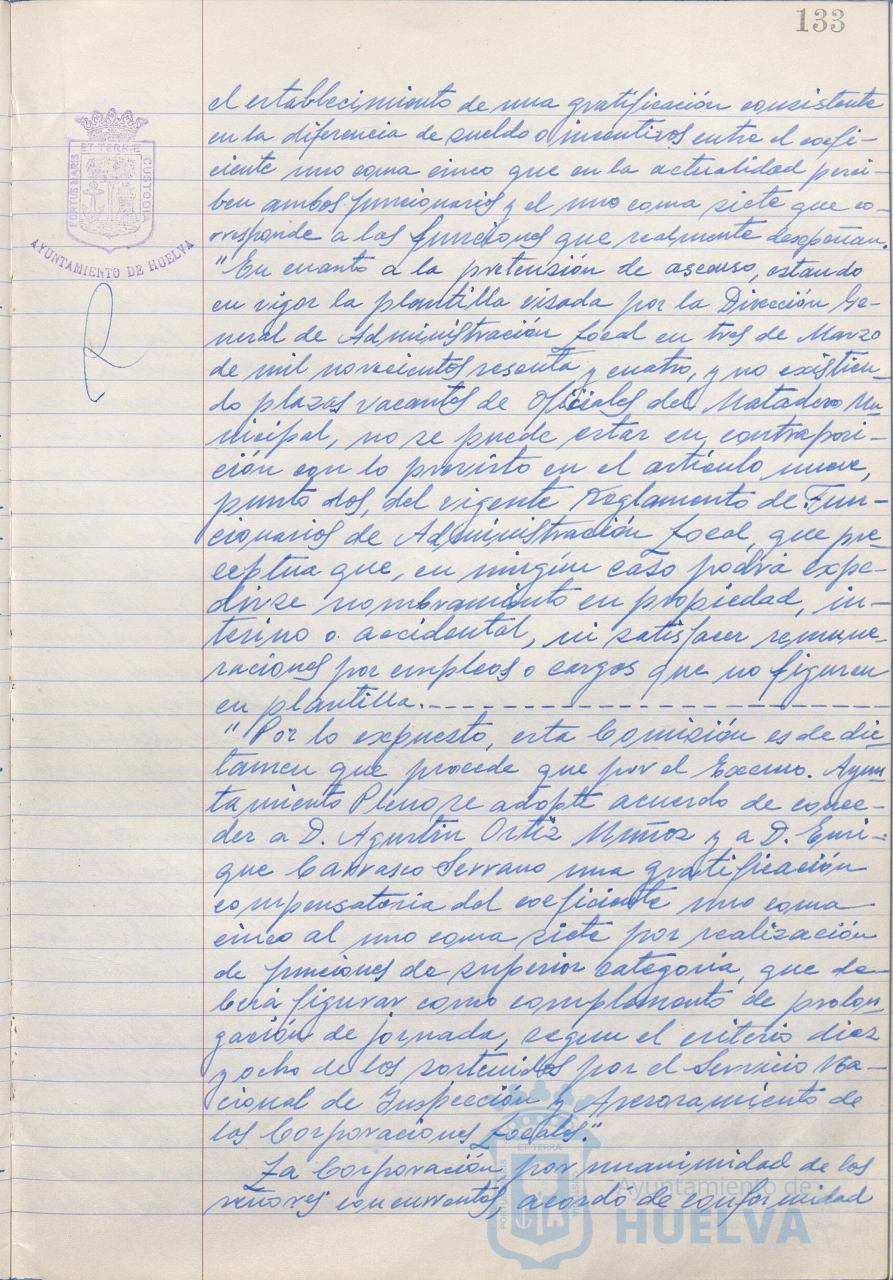 133
PORTUS MARIS ET TERRÆ CUSTODIA
AYUNTAMIENTO DE HUELVA
el establecimiento de una gratificación consistente
en la diferencia de sueldo o incentivos entre el coefi-
ciente uno coma cinco que en la actualidad perci-
ben ambos funcionarios y el uno coma siete que co-
rresponde a las funciones que realmente desepeñan.
"En cuanto a la pretensión de ascenso, estando
en vigor la plantilla visada por la Dirección Ge-
neral de Administración Local en tres de Marzo
de mil novecientos sesenta y cuatro, y no existien-
do plazas vacantes de Oficiales del Matadero Mu-
nicipal, no se puede estar en contraposi-
ción con lo previsto en el artículo nueve,
punto dos, del vigente Reglamento de Fun-
cionarios de Administración Local, que pre-
ceptua que, en ningún caso podrá expe-
dirse nombramiento en propiedad, in-
terino o accidental, ni satisfacer remune-
raciones por empleos o cargos que no figuren
en plantilla.
"Por lo expuesto, esta Comisión es de dic-
tamen que procede que por el Excmo. Ayun
tamiento Pleno se adopte acuerdo de conce-
der a D. Agustín Ortiz Muñoz y a D. Enri-
que Carrasco Serrano una gratificación
compensatoria del coeficiente uno coma
cinco al uno coma siete por realización
de funciones de superior categoría, que de-
berá figurar como complemento de prolon-
gación de jornada, segun el criterio diez
y ocho de los sostenidos por el Servicio Na-
cional de Inspección y Asesoramiento de
las Corporaciones Locales."
La Corporación por unanimidad de los
señores concurrentes, acordó de conformidad
Ayuntamiento de
HUELVA